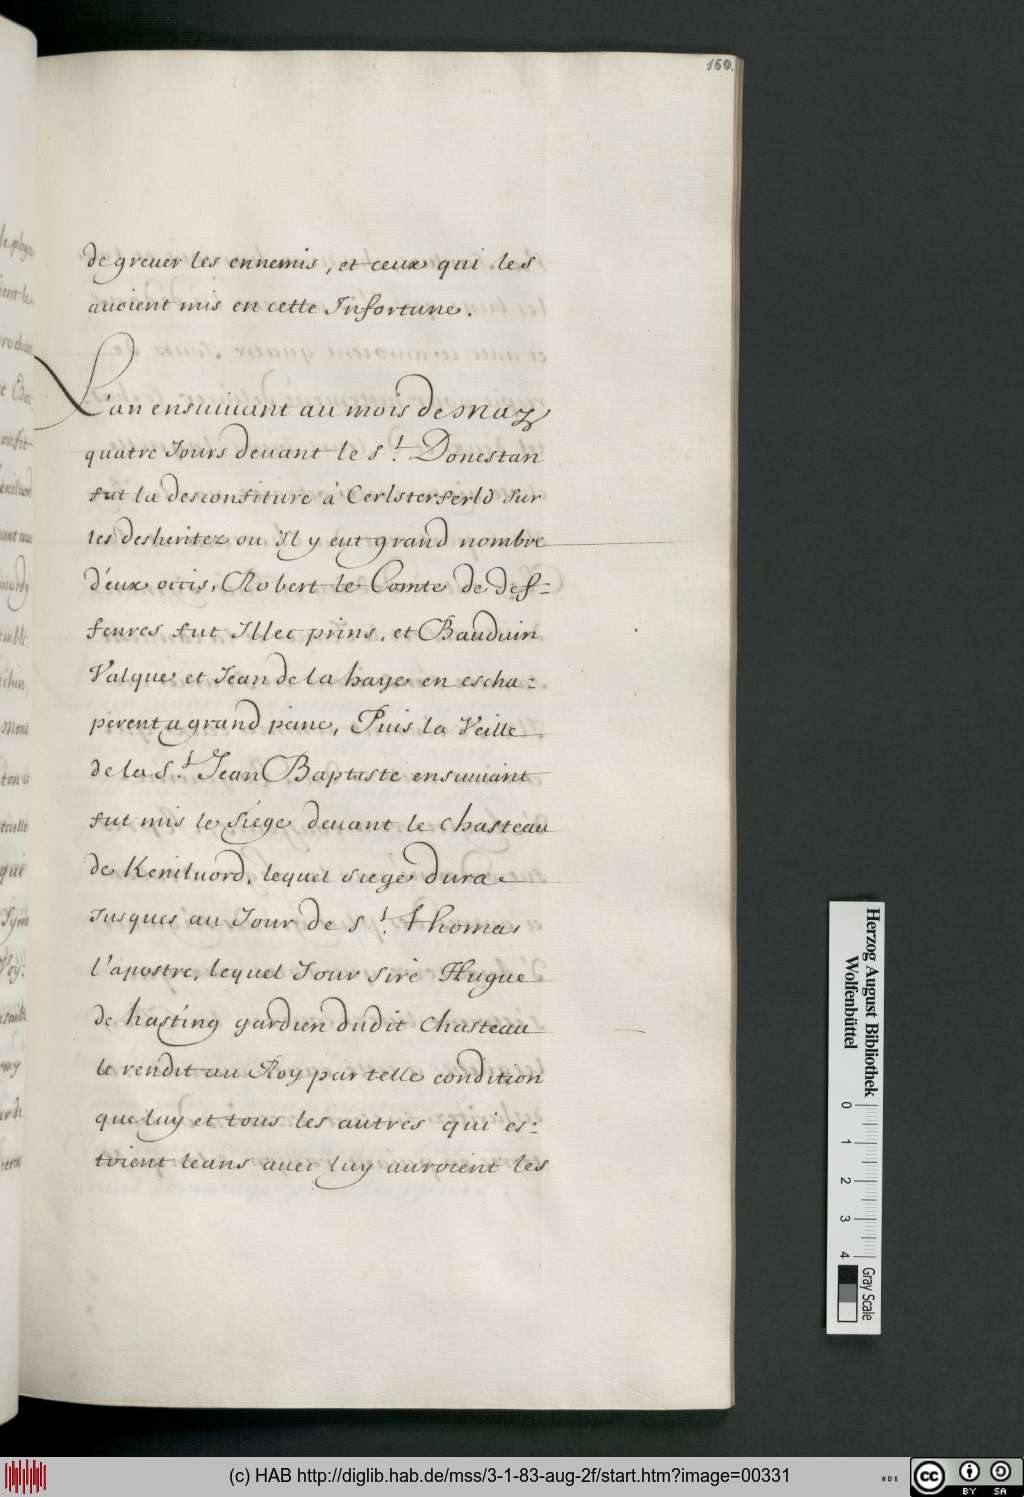 160.
de greuer les ennemis, et ceux qui les
auoient mis en cette Infortune.
L'an ensuiuant au mois de May
quatre Jours deuant le St. Donestan
fut la desconfiture à Cerlsterferld sur
les desheritez ou Il y eut grand nombre
d'eux occis, Robert le Comte de def-
feures fut Illec prins, et Bauduin
Valque et Jean de la haye en escha-
perent a grand peine, Puis la Veille
de la St. Jean Baptiste ensuiuant
fut mis le siége deuant le chasteau
de Keniluord, lequel siege dura
Jusques au Jour de St. Thomas
l'apostre, lequel Jour sire Hugue
de hasting gardien dudit chasteau
le rendit au Roy par telle condition
que luy et tous les autres qui es-
toient leans auec luy auroient les
Herzog August Bibliothek
Wolfenbüttel
0 1 2 3 4
Gray Scale
(c) HAB http://diglib.hab.de/mss/3-1-83-aug-2f/start.htm?image=00331
cc BY SA